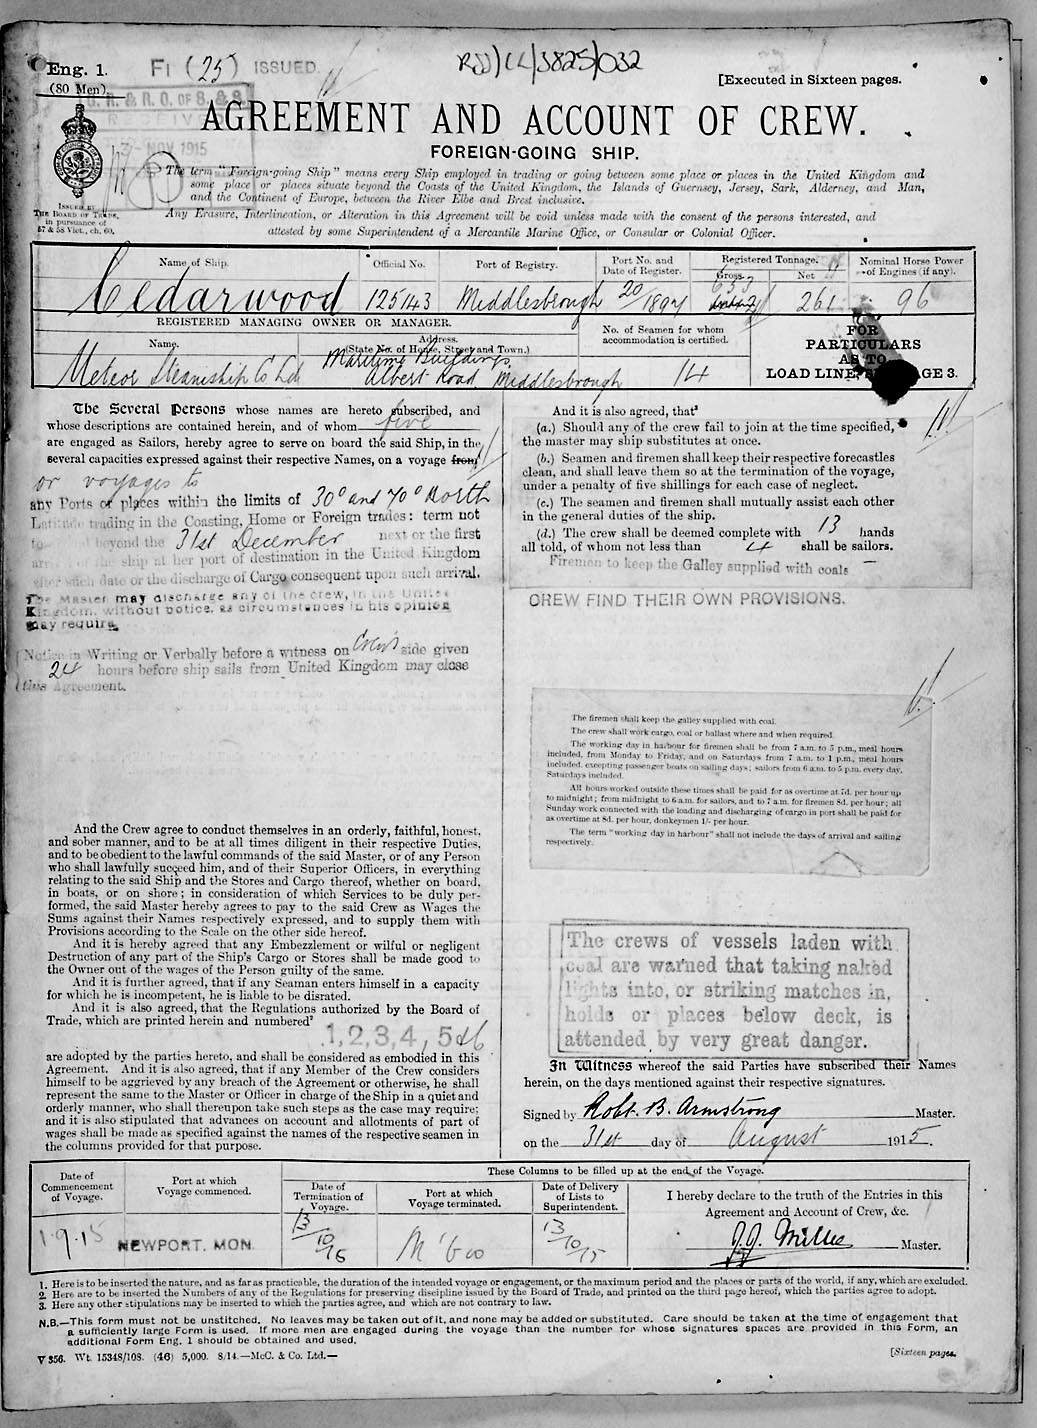 Eng. 1.
(80 Men)
FI (25) ISSUED.
RSS/CL/3825/032
[Executed in Sixteen pages.
G. R. & R. O. OF S. & S.
RECEIV
NOV 1915
AGREEMENT AND ACCOUNT OF CREW.
FOREIGN-GOING SHIP.
The term "Foreign-going Ship" means every Ship employed in trading or going between some place or places in the United Kingdom and
some place or places situate beyond the Coasts of the United Kingdom, the Islands of Guernsey, Jersey, Sark, Alderney, and Man,
and the Continent of Europe, between the River Elbe and Brest inclusive.
Any Erasure, Interlineation, or Alteration in this Agreement will be void unless made with the consent of the persons interested, and
attested by some Superintendent of a Mercantile Marine Office, or Consular or Colonial Officer.
ISSUED BY
THE BOARD OF TRADE,
in pursuance of
57 & 58 Vict., ch. 60.
Name of Ship.
Official No.
Port of Registry.
Port No. and
Date of Register.
Registered Tonnage.
Gross
Net
Nominal Horse Power
of Engines (if any).
Cedarwood
125143
Middlesbrough
20/1897
653
261
96
REGISTERED MANAGING OWNER OR MANAGER.
Name.
Address.
(State No. of House, Street and Town.)
No. of Seamen for whom
accommodation is certified.
Meteor Steamship Co Ltd
Maritime Buildings,
Albert Road, Middlesbrough
14
FOR
PARTICULARS
AS TO
LOAD LINE, PAGE 3.
The Several Persons whose names are hereto subscribed, and
whose descriptions are contained herein, and of whom five
are engaged as Sailors, hereby agree to serve on board the said Ship, in the
several capacities expressed against their respective Names, on a voyage from,
or voyages to
any Ports or places within the limits of 30° and 70° North
Latitude trading in the Coasting, Home or Foreign trades: term not
to beyond the 31st December next or the first
of the ship at her port of destination in the United Kingdom
after such date or the discharge of Cargo consequent upon such arrival.
The Master may discharge any of the crew, in the United
Kingdom, without notice, as circumstances in his opinion
may require.
(Notice in Writing or Verbally before a witness on Crew's side given
24 hours before ship sails from United Kingdom may close
this Agreement.
And the Crew agree to conduct themselves in an orderly, faithful, honest,
and sober manner, and to be at all times diligent in their respective Duties,
and to be obedient to the lawful commands of the said Master, or of any Person
who shall lawfully succeed him, and of their Superior Officers, in everything
relating to the said Ship and the Stores and Cargo thereof, whether on board,
in boats, or on shore; in consideration of which Services to be duly per-
formed, the said Master hereby agrees to pay to the said Crew as Wages the
Sums against their Names respectively expressed, and to supply them with
Provisions according to the Scale on the other side hereof.
And it is hereby agreed that any Embezzlement or wilful or negligent
Destruction of any part of the Ship's Cargo or Stores shall be made good to
the Owner out of the wages of the Person guilty of the same.
And it is further agreed, that if any Seaman enters himself in a capacity
for which he is incompetent, he is liable to be disrated.
And it is also agreed, that the Regulations authorized by the Board of
Trade, which are printed herein and numbered²
1, 2, 3, 4, 5 & 6
are adopted by the parties hereto, and shall be considered as embodied in this
Agreement. And it is also agreed, that if any Member of the Crew considers
himself to be aggrieved by any breach of the Agreement or otherwise, he shall
represent the same to the Master or Officer in charge of the Ship in a quiet and
orderly manner, who shall thereupon take such steps as the case may require;
and it is also stipulated that advances on account and allotments of part of
wages shall be made as specified against the names of the respective seamen in
the columns provided for that purpose.
And it is also agreed, that³
(a.) Should any of the crew fail to join at the time specified,
the master may ship substitutes at once.
(b.) Seamen and firemen shall keep their respective forecastles
clean, and shall leave them so at the termination of the voyage,
under a penalty of five shillings for each case of neglect.
(c.) The seamen and firemen shall mutually assist each other
in the general duties of the ship.
(d.) The crew shall be deemed complete with 13 hands
all told, of whom not less than 4 shall be sailors.
Firemen to keep the Galley supplied with coals
CREW FIND THEIR OWN PROVISIONS.
The firemen shall keep the galley supplied with coal.
The crew shall work cargo, coal or ballast where and when required.
The working day in harbour for firemen shall be from 7 a.m. to 5 p.m., meal hours
included, from Monday to Friday, and on Saturdays from 7 a.m. to 1 p.m., meal hours
included, excepting passenger boats on sailing days; sailors from 6 a.m. to 5 p.m. every day,
Saturdays included.
All hours worked outside these times shall be paid for as overtime at 7d. per hour up
to midnight; from midnight to 6 a.m. for sailors, and to 7 a.m. for firemen 8d. per hour; all
Sunday work connected with the loading and discharging of cargo in port shall be paid for
as overtime at 8d. per hour, donkeymen 1/- per hour.
The term "working day in harbour" shall not include the days of arrival and sailing
respectively.
The crews of vessels laden with
coal are warned that taking naked
lights into, or striking matches in,
holds or places below deck, is
attended by very great danger.
In Witness whereof the said Parties have subscribed their Names
herein, on the days mentioned against their respective signatures.
Signed by Robt. B. Armstrong Master.
on the 31st day of August 1915.
Date of
Commencement
of Voyage.
Port at which
Voyage commenced.
These Columns to be filled up at the end of the Voyage.
Date of
Termination of
Voyage.
Port at which
Voyage terminated.
Date of Delivery
of Lists to
Superintendent.
I hereby declare to the truth of the Entries in this
Agreement and Account of Crew, &c.
1.9.15
NEWPORT. MON.
13/10/15
M'bro
13/10/15
J. J. Millis Master.
1. Here is to be inserted the nature, and as far as practicable, the duration of the intended voyage or engagement, or the maximum period and the places or parts of the world, if any, which are excluded.
2. Here are to be inserted the Numbers of any of the Regulations for preserving discipline issued by the Board of Trade, and printed on the third page hereof, which the parties agree to adopt.
3. Here any other stipulations may be inserted to which the parties agree, and which are not contrary to law.
N.B.—This form must not be unstitched. No leaves may be taken out of it, and none may be added or substituted. Care should be taken at the time of engagement that
a sufficiently large Form is used. If more men are engaged during the voyage than the number for whose signatures spaces are provided in this Form, an
additional Form Eng. 1 should be obtained and used.
V 356. Wt. 15348/108. (46) 5,000. 8/14.—McC. & Co. Ltd.—
[Sixteen pages.